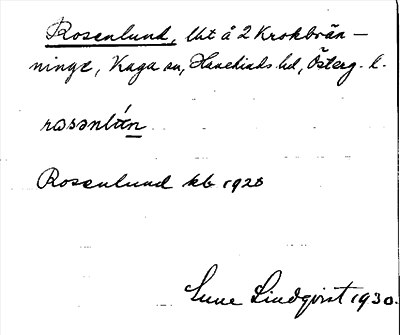 Rosenlund, Uht å 2 Krokbrän-
ninge, Kaga sn, Hanekinds hd, Österg. l.
rosənlún
Rosenlund kb 1928
Sune Lindqvist 1930.